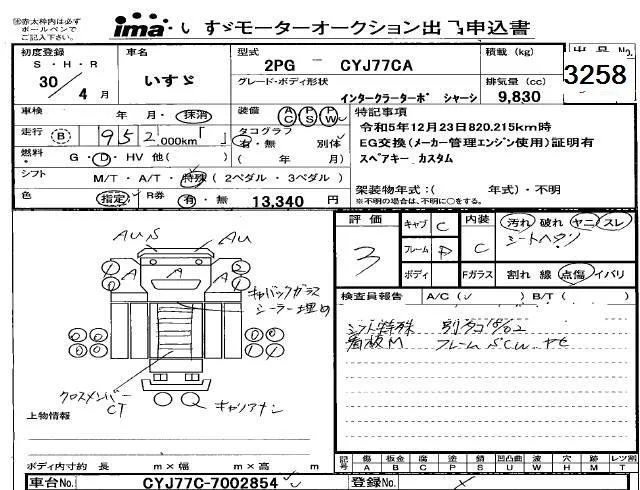 ※赤太枠内は必ず
ボールペンで
ご記入下さい。
ima いすゞモーターオークション出品申込書
初度登録 S・H・R 30 4 月
車名 いすゞ
型式 2PG － CYJ77CA
グレード・ボディ形状 インタークーラーターボ シャーシ
積載 (kg)
排気量 (cc) 9,830
出品No. 3258
車検 年 月・抹消
装備 AC PS PW
走行 B 952,000km
タコグラフ 有・無 別体
( 年 月)
燃料 G・D・HV 他( )
シフト M/T・A/T・特殊 (2ペダル・3ペダル)
色 指定 R券 有・無 13,340 円
特記事項
令和5年12月23日820.215km時
EG交換(メーカー管理エンジン使用)証明有
スペアキー、カスタム
架装物年式：( 年式)・不明
※不明の場合は、不明に○をする。
評価 3
キャブ C
フレーム D
ボディ
内装 C
Fガラス
汚れ 破れ ヤニ スレ
シートヘタリ
割れ 線 点傷 イバリ
検査員報告 A/C( ) B/T( )
シフト特殊
看板M フレーム SCW ヤセ
AU S AU
A A A
キャバックガラス
シーラー埋め
クロスメンバー
CT
キャリアナシ
上物情報
ボディ内寸約 長 m×幅 m×高 m
記号 傷 板金 腐 塗 錆 凹凸曲 波 穴 跡 レツ割
A B C P S U W H M T
車台No. CYJ77C-7002854
登録No.